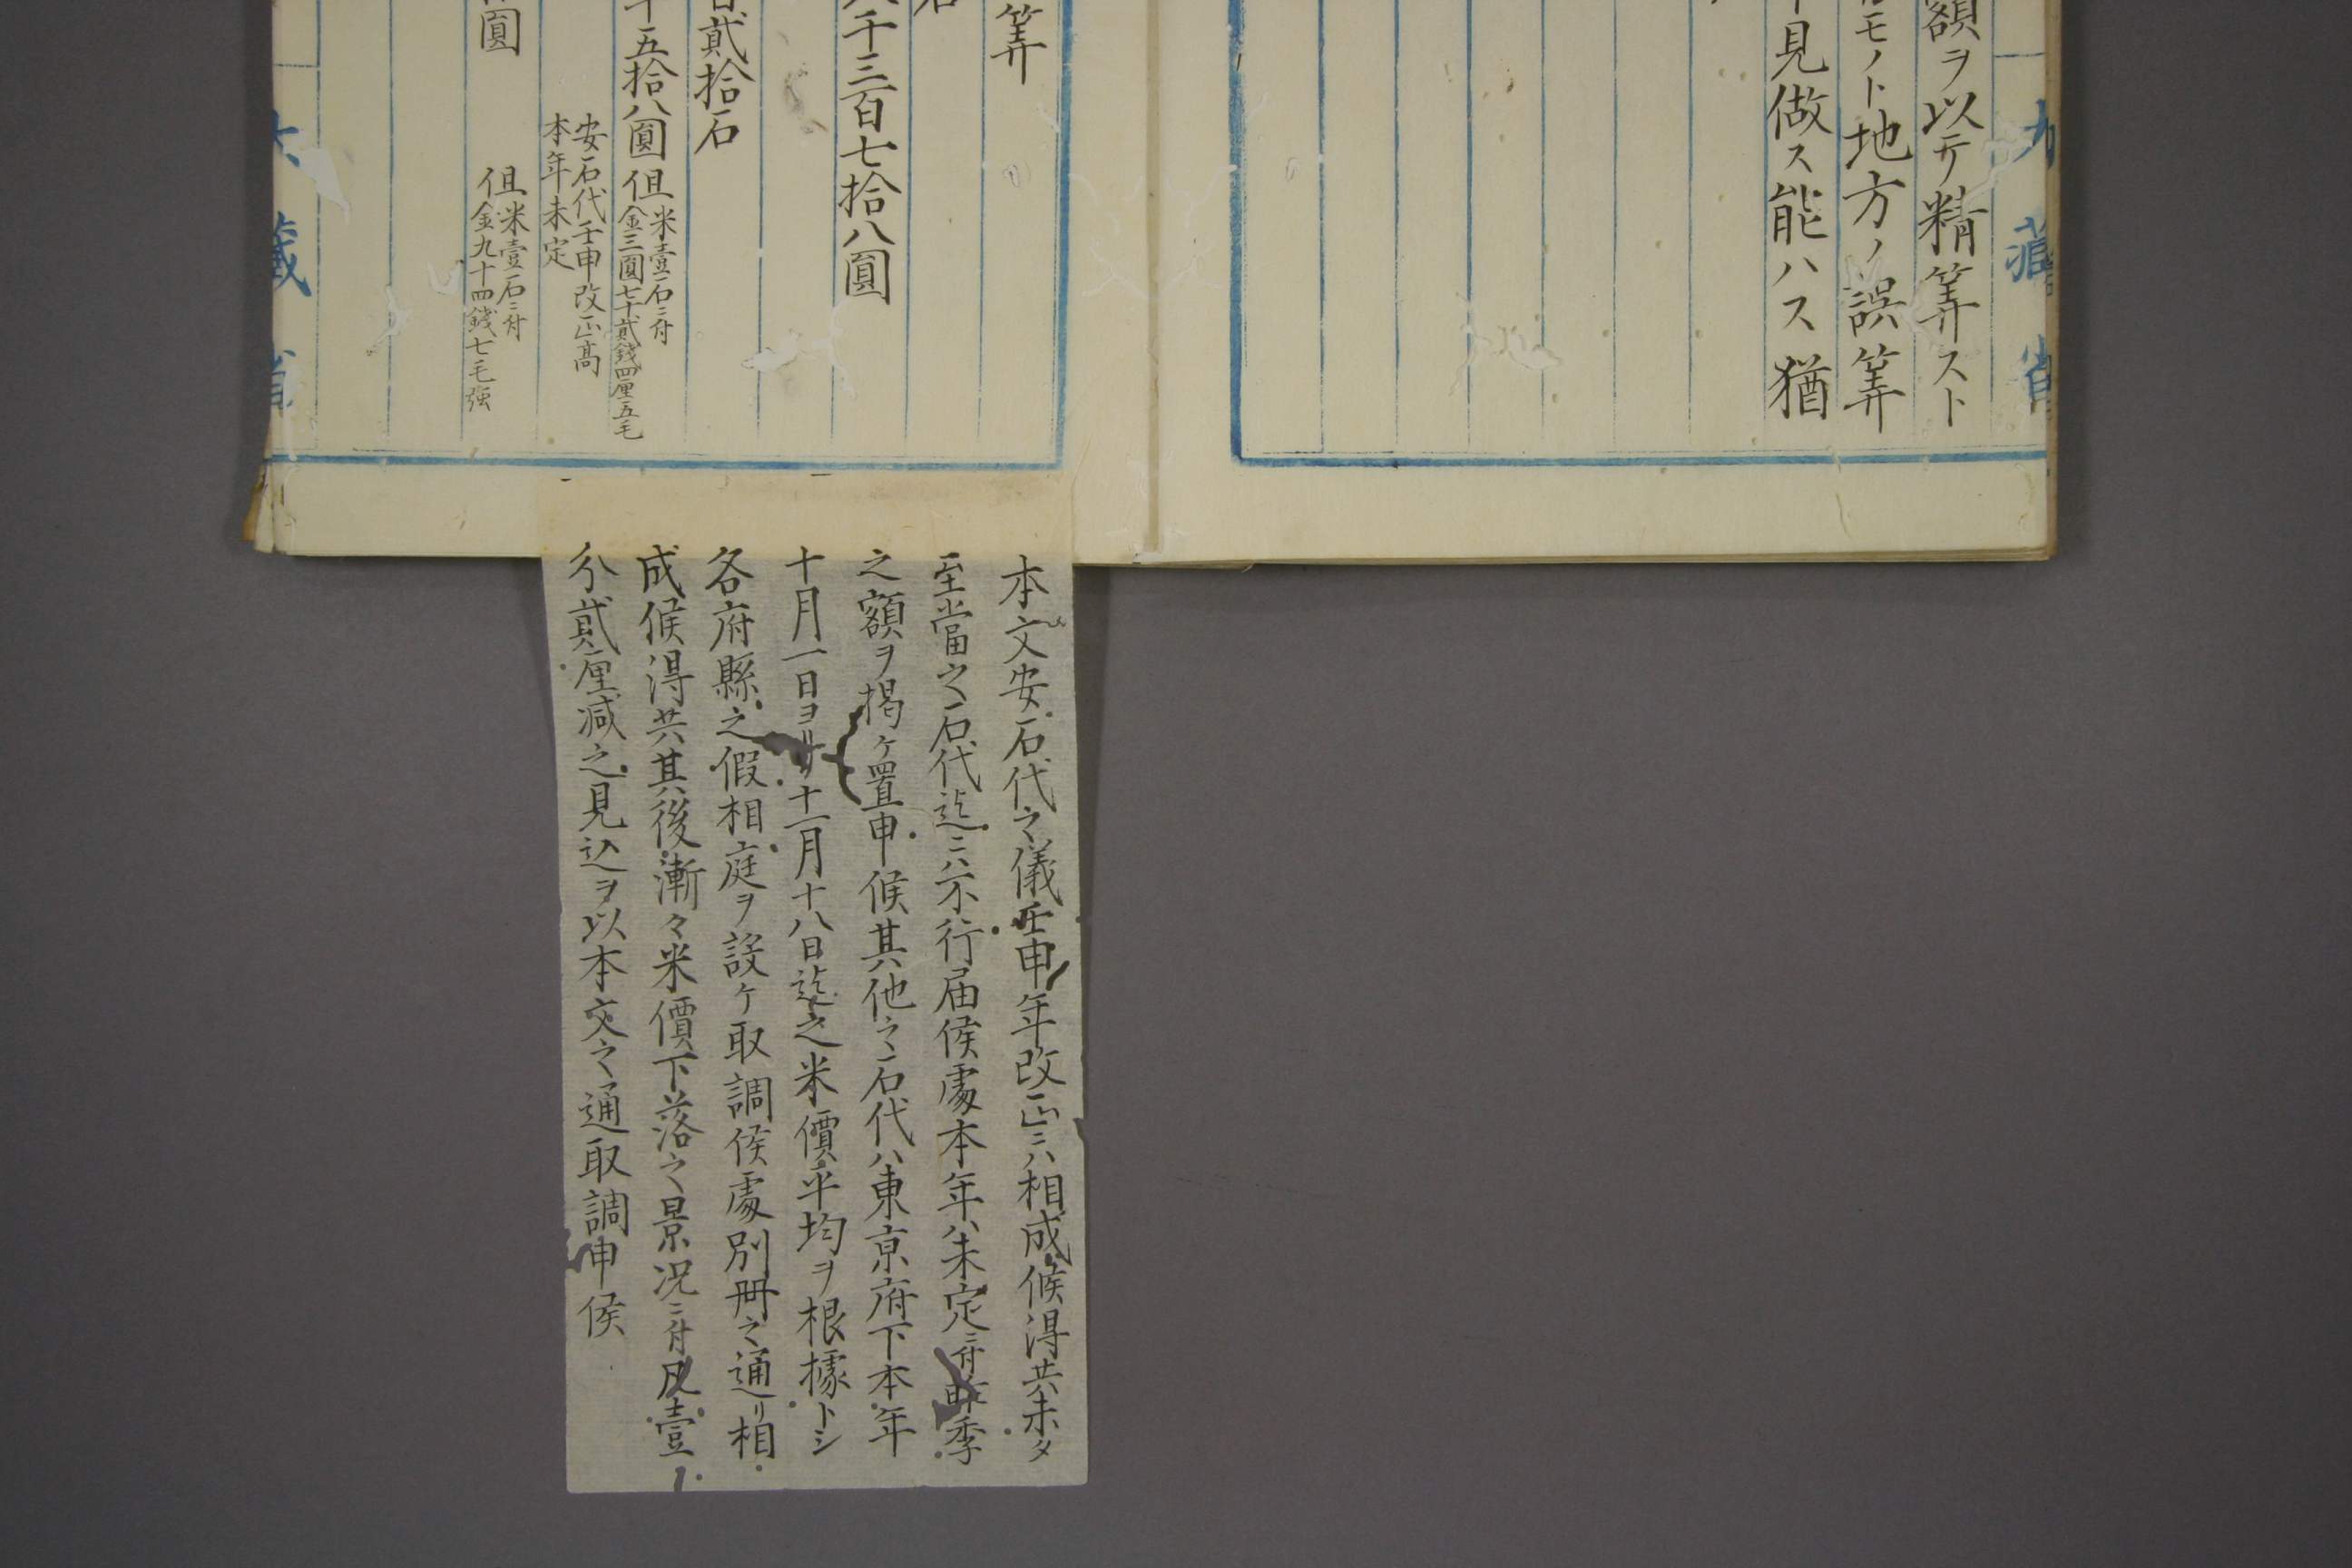 大藏省
額ヲ以テ精算スト
モノト地方ノ誤算
見做ス能ハス猶
算
千三百七拾八圓
貳拾石
五拾八圓 但米壹石ニ付金三圓七十貳錢四厘五毛
安石代壬申改正高
本年未定
圓 但米壹石ニ付金九十四錢七毛強
大藏省
本文安石代之儀壬申年改正ニハ相成候得共未タ
至當之石代迄ニハ不行届候處本年ハ未定ニ付昨季
之額ヲ揭ケ置申候其他之石代ハ東京府下本年
十月一日ヨリ十一月十八日迄之米價平均ヲ根據トシ
各府縣之假相庭ヲ設ケ取調候處別冊之通リ相
成候得共其後漸々米價下落之景况ニ付凡壹
分貳厘減之見込ヲ以本文之通取調申候